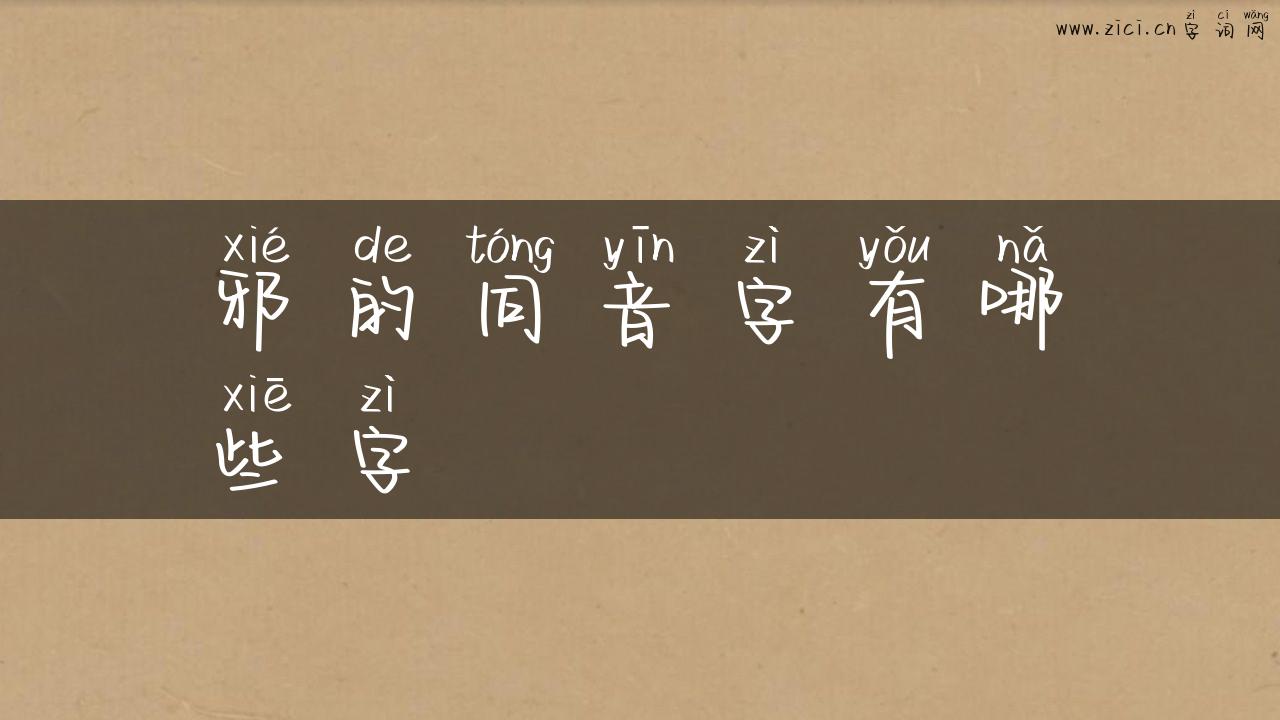 zì cí wǎng
www.zici.cn 字词网
xié de tóng yīn zì yǒu nǎ
邪的同音字有哪
xiē zì
些字